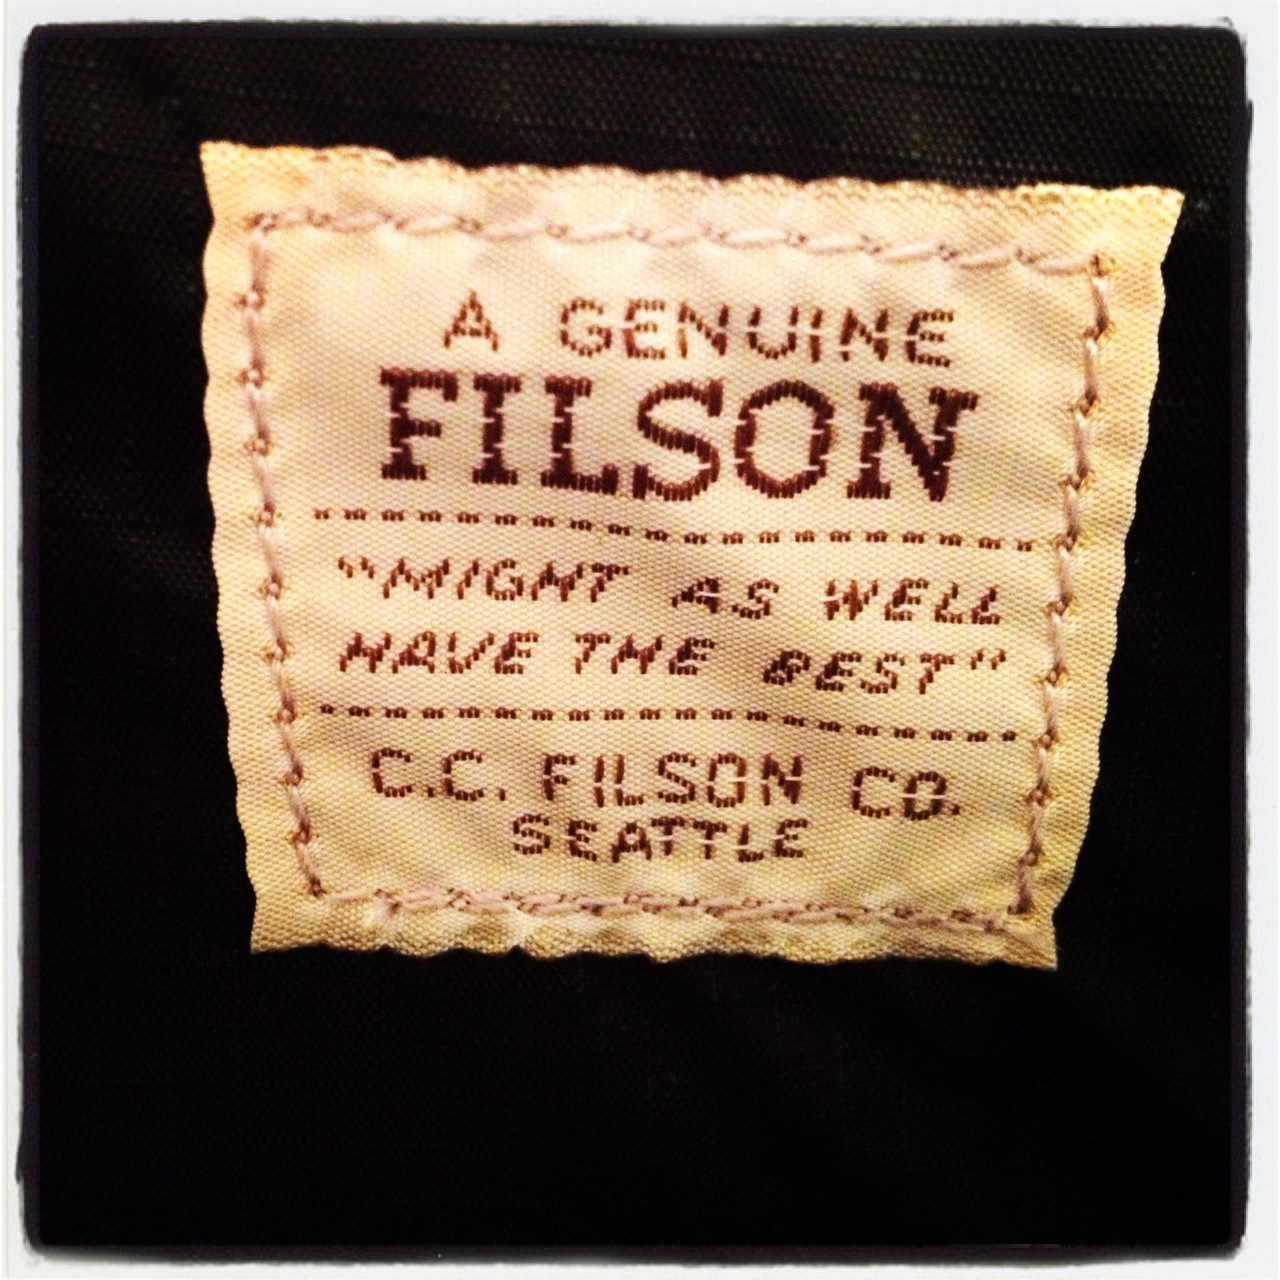 A GENUINE
FILSON
"MIGHT AS WELL
HAVE THE BEST"
C.C. FILSON CO.
SEATTLE